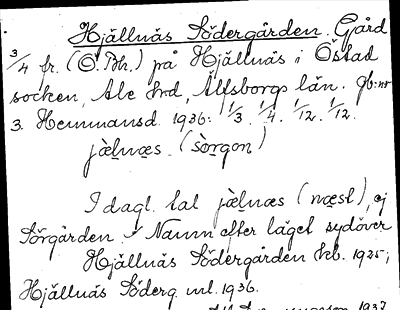 Hjällnäs Södergården. Gård
3/4 fr. (C. Bh.) på Hjällnäs i Östad
socken, Ale hrd, Älfsborgs län. Gb:nr
3. Hemmansd. 1936: 1/3. 1/4. 1/12. 1/12.
jæ̀lnæs. (sòrgon)
I dagl. tal jæ̀lnæs (næst), ej
Sörgården. Namn efter läget sydöver
Hjällnäs Södergården kb. 1925;
Hjällnäs Söderg. ml. 1936.
1937